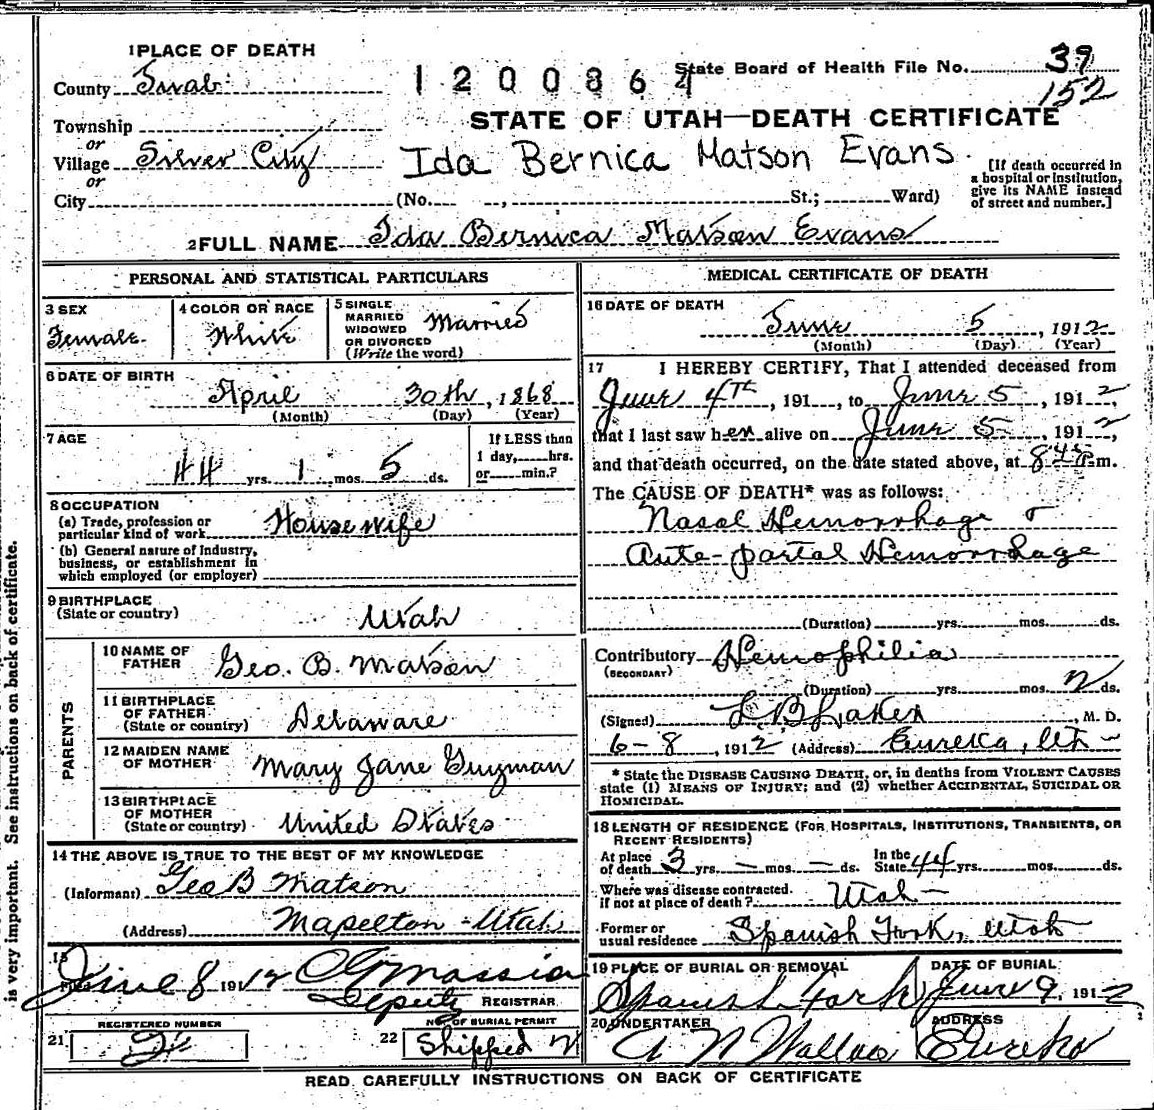 1 PLACE OF DEATH
County Juab
1200864
State Board of Health File No. 39
152
STATE OF UTAH—DEATH CERTIFICATE
Township
or
Village Silver City
Ida Bernica Matson Evans
or
City (No. St.; Ward)
[If death occurred in
a hospital or institution,
give its NAME instead
of street and number.]
2 FULL NAME Ida Bernica Matson Evans
PERSONAL AND STATISTICAL PARTICULARS
3 SEX
Female
4 COLOR OR RACE
White
5 SINGLE
MARRIED
WIDOWED
OR DIVORCED
(Write the word)
Married
6 DATE OF BIRTH
April 30th, 1868
(Month) (Day) (Year)
7 AGE
44 yrs. 1 mos. 5 ds.
If LESS than
1 day, hrs.
or min.?
8 OCCUPATION
(a) Trade, profession or
particular kind of work Housewife
(b) General nature of Industry,
business, or establishment in
which employed (or employer)
9 BIRTHPLACE
(State or country) Utah
PARENTS
10 NAME OF
FATHER Geo. B. Matson
11 BIRTHPLACE
OF FATHER
(State or country) Delaware
12 MAIDEN NAME
OF MOTHER Mary Jane Guyman
13 BIRTHPLACE
OF MOTHER
(State or country) United States
14 THE ABOVE IS TRUE TO THE BEST OF MY KNOWLEDGE
(Informant) Geo B Matson
(Address) Mapelton - Utah
15
June 8 1912
Deputy REGISTRAR
REGISTERED NUMBER
21
22
NO. OF BURIAL PERMIT
Shipped
MEDICAL CERTIFICATE OF DEATH
16 DATE OF DEATH
June 5, 1912
(Month) (Day) (Year)
17 I HEREBY CERTIFY, That I attended deceased from
June 4th, 191 , to June 5, 1912,
that I last saw her alive on June 5, 1912,
and that death occurred, on the date stated above, at 8 45 P.m.
The CAUSE OF DEATH* was as follows:
Nasal Hemorrhage &
Ante-partal Hemorrhage
(Duration) yrs. mos. ds.
Contributory Hemophilia
(SECONDARY)
(Duration) yrs. mos. ds.
(Signed) , M. D.
6-8, 1912 (Address) Eureka, Ut
* State the DISEASE CAUSING DEATH, or, in deaths from VIOLENT CAUSES
state (1) MEANS OF INJURY; and (2) whether ACCIDENTAL, SUICIDAL OR
HOMICIDAL.
18 LENGTH OF RESIDENCE (FOR HOSPITALS, INSTITUTIONS, TRANSIENTS, OR
RECENT RESIDENTS)
At place
of death 3 yrs. — mos. — ds.
In the
State 44 yrs. mos. ds.
Where was disease contracted.
if not at place of death? Utah —
Former or
usual residence Spanish Fork, Utah
19 PLACE OF BURIAL OR REMOVAL
Spanish Fork
DATE OF BURIAL
June 9, 1912
20 UNDERTAKER
A N Wallace
ADDRESS
Eureka
READ CAREFULLY INSTRUCTIONS ON BACK OF CERTIFICATE
is very important. See instructions on back of certificate.